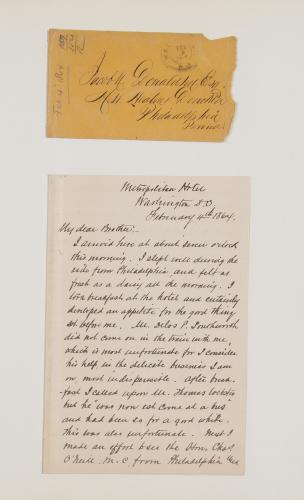 Feb 4" 1864
Jacob Donaldson Esq.
Philadelphia
Penna
Metropolitan Hotel
Washington D.C.
February 4th 1864.
My dear Brother:-
I arrived here at about seven o'clock
this morning. I slept well during the
ride from Philadelphia, and felt as
fresh as a daisy all the morning. I
took breakfast at the hotel and certainly
developed an appetite for the good things
set before me. Mr. Delos P. Southworth
did not come on in the train with me,
which is most unfortunate for I consider
his help, in the delicate business I am
on, most indispensible. After break-
fast I called upon Mr. Thomas
but he "was now est come at a bus"
and had been so for a good while.
This was also unfortunate. Next I
made an effort to see the Hon. Chas.
O'Neill M.C. from Philadelphia